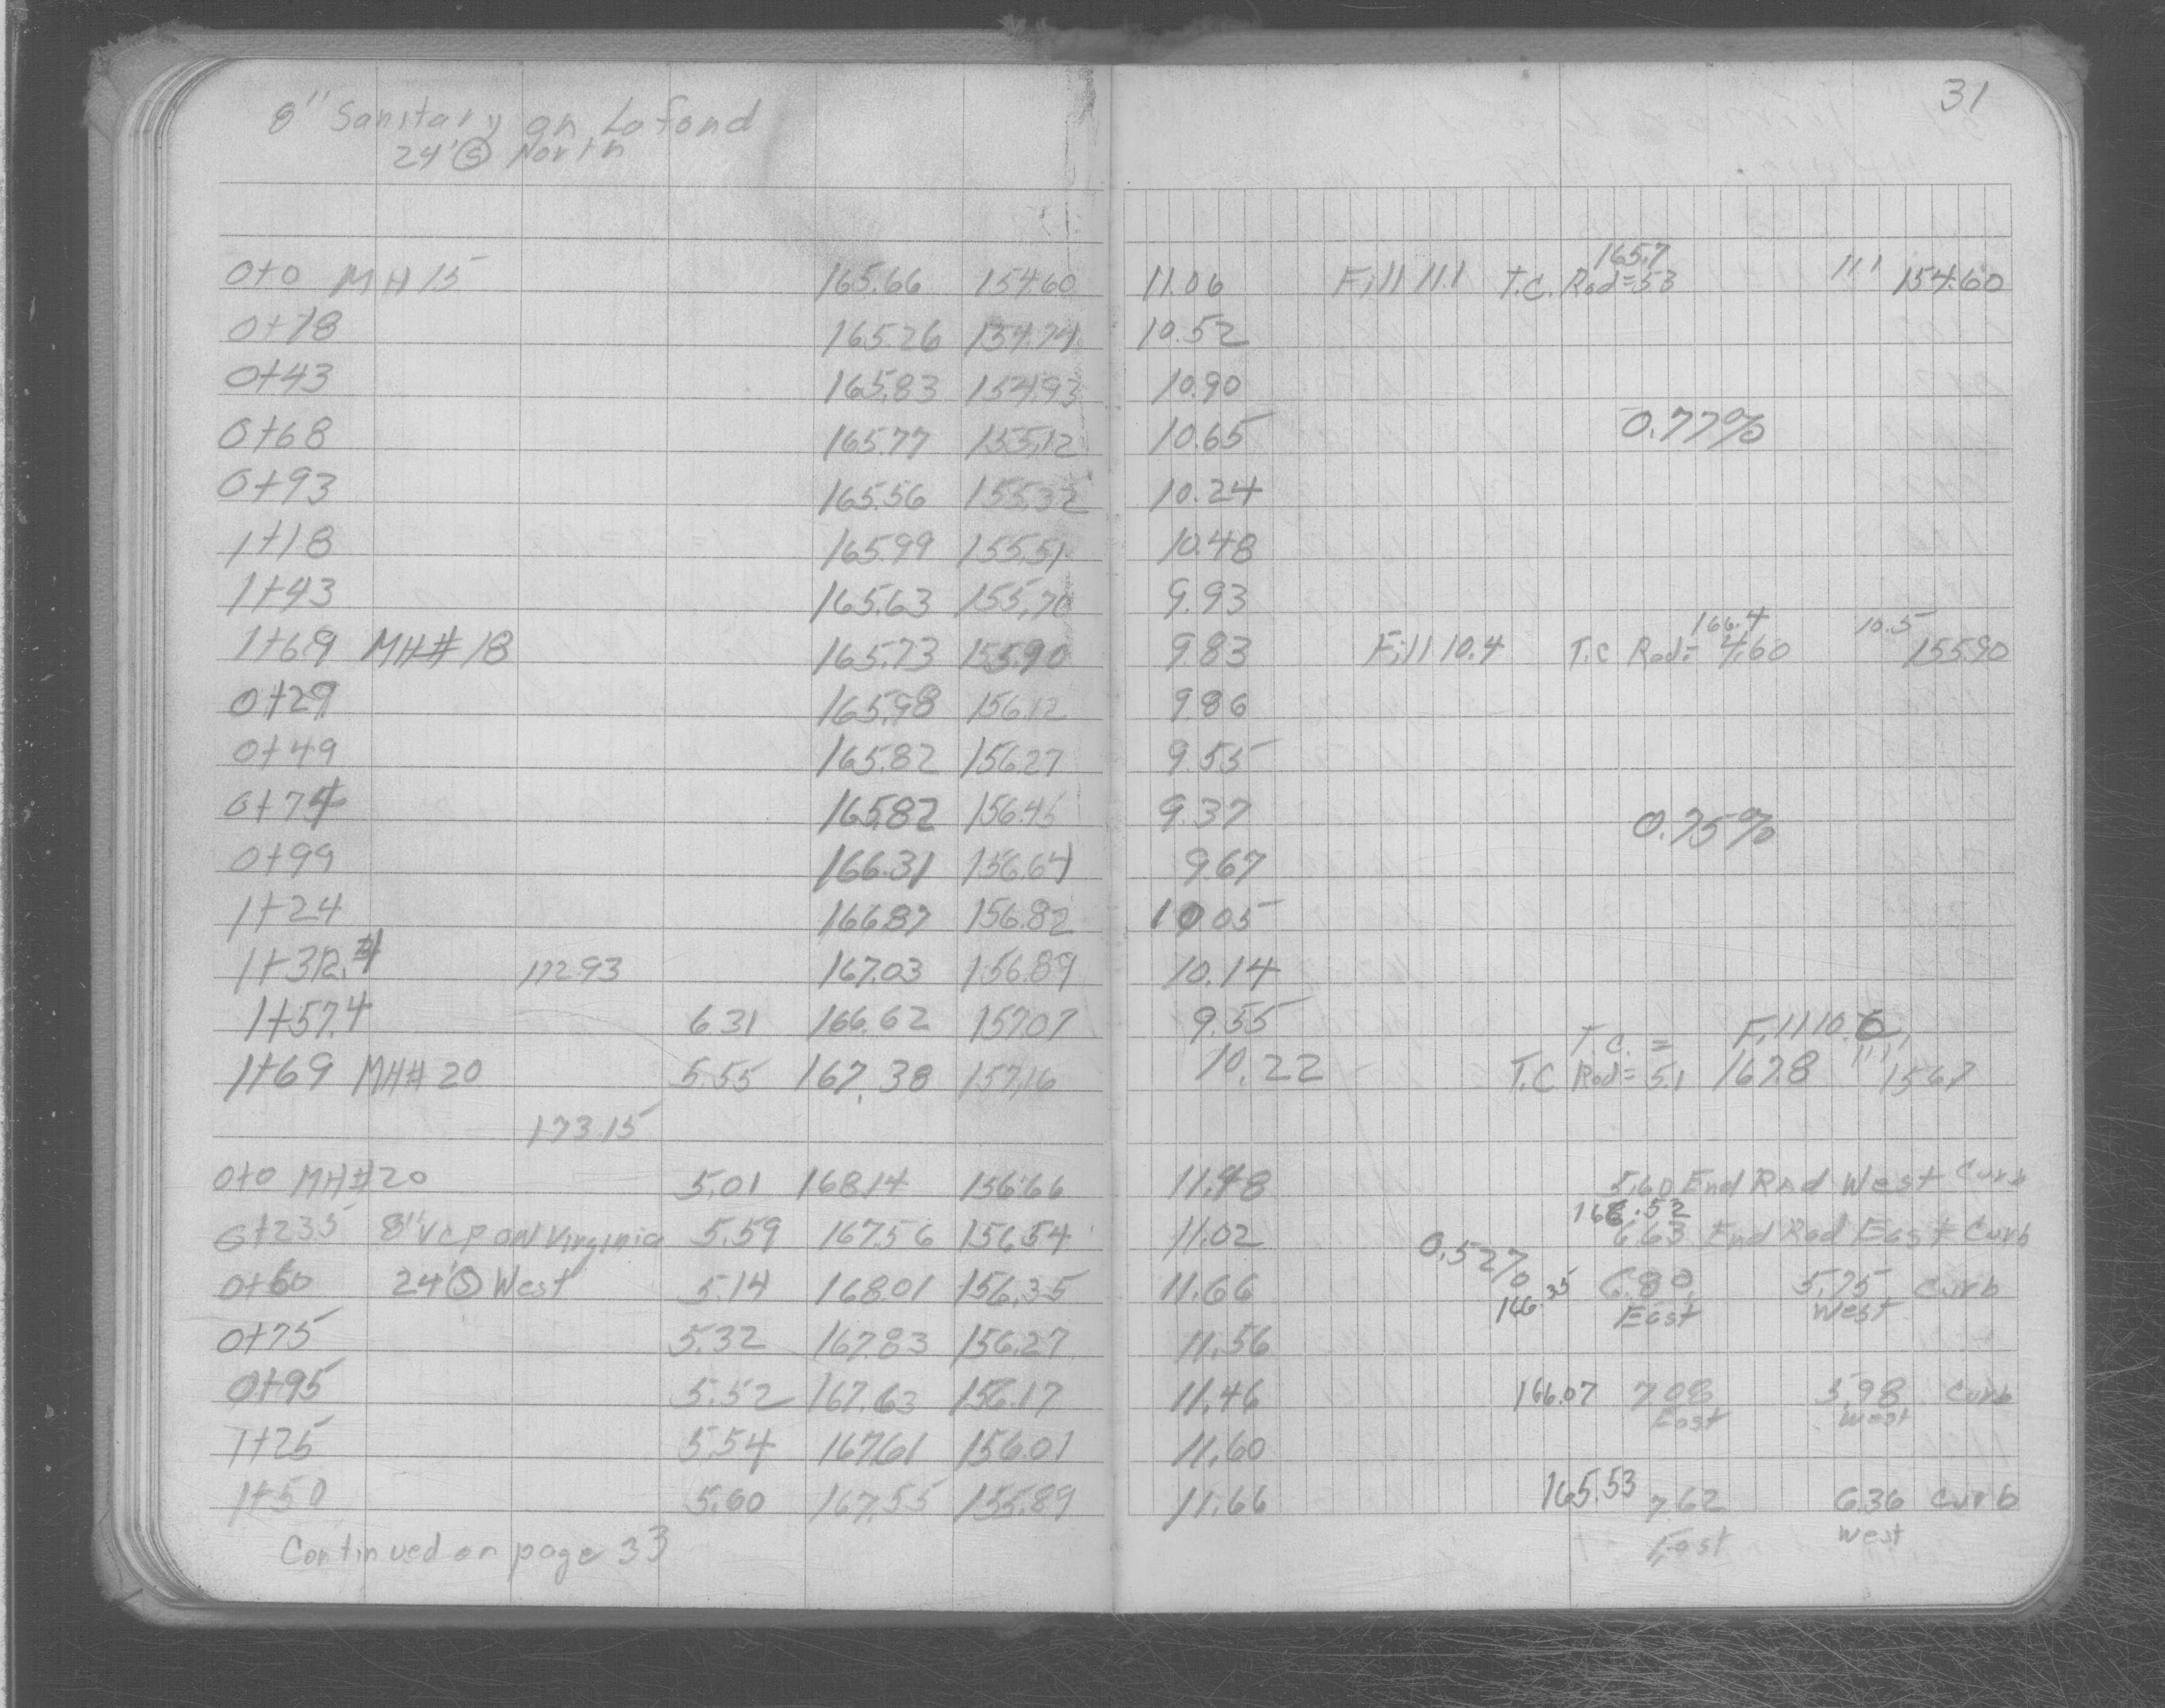 31
8" Sanitary on Lafond
24' Ⓢ North
165.7
0+0 MH 15 165.66 154.60 11.06 Fill 11.1 T.C. Rod = 53 11' 154.60
0+18 165.26 154.74 10.52
0+43 165.83 154.93 10.90
0+68 165.77 155.12 10.65 0.77%
0+93 165.56 155.32 10.24
1+18 165.99 155.51 10.48
1+43 165.63 155.70 9.93
166.4 10.5
1+69 MH# 18 165.73 155.90 9.83 Fill 10.4 T.C Rod = 4.60 155.90
0+29 165.98 156.12 9.86
0+49 165.82 156.27 9.55
0+74 165.82 156.45 9.37 0.75%
0+99 166.31 156.64 9.67
1+24 166.87 156.82 10.05
1+32.4 172.93 167.03 156.89 10.14
1+57.4 6.31 166.62 157.07 9.55 T.C. = Fill 10.6
1+69 MH# 20 5.55 167.38 157.16 10.22 T.C Rod = 5.1 167.8 11.1 156.7
173.15
0+0 MH# 20 5.01 168.14 156.66 11.48 5.60 End Rad West Curb
166.52
0+235 8" VCP ON Virginia 5.59 167.56 156.54 11.02 6.63 End Rad East Curb
0.52%
0+60 24' Ⓢ West 5.14 168.01 156.35 11.66 166.35 6.80 East 5.75 West Curb
0+75 5.32 167.83 156.27 11.56
0+95 5.52 167.63 156.17 11.46 166.07 7.08 East 5.98 West Curb
1+25 5.54 167.61 156.01 11.60
1+50 5.60 167.55 155.89 11.66 165.53 7.62 East 6.36 West Curb
Continued on page 33